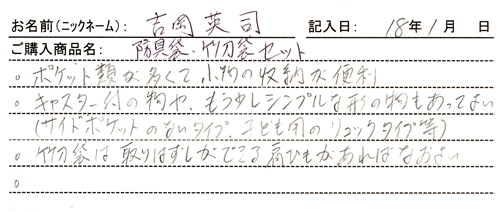 お名前(ニックネーム): 吉岡英司 記入日: 18年 1月 日
ご購入商品名: 防具袋・竹刀袋セット
。ポケット類が多くて小物の収納が便利
。キャスター付の物や、もう少しシンプルな形の物もあってよい
(サイドポケットのないタイプ、子ども用のリュックタイプ等)
。竹刀袋は取りはずしができる肩ひもがあればなおよい
。